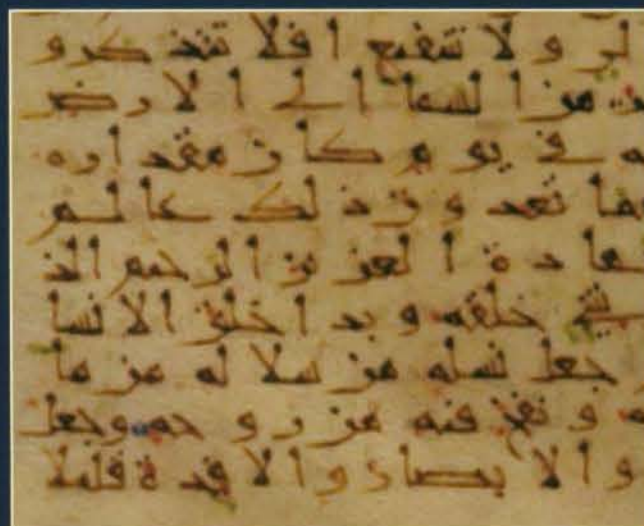 ولا شفيع افلا تتذكرو
من السما الى الارض
في يوم كان مقداره
مما تعدون ذلك علم
هادة العزيز الرحيم الذ
شي خلقه وبدا خلق الانسا
جعل نسله من سلاله من ما
ونفخ فيه من روحه وجعل
والابصار والافدة قليلا